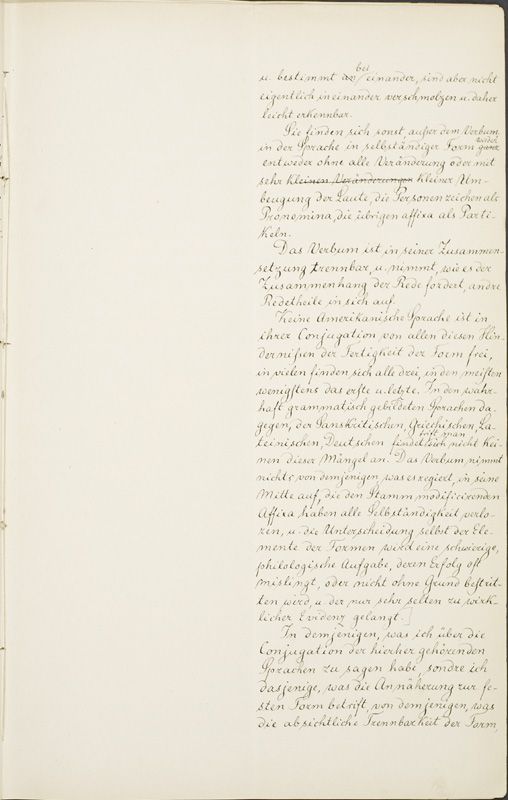 bei
u. bestimmt an/einander, sind aber nicht
eigentlich in einander verschmolzen u. daher
leicht erkennbar.
Sie finden sich sonst außer dem Verbum
in der Sprache in selbständiger Form wieder
entweder ohne alle Veränderung oder mit
sehr kleinen Veränderungen kleiner Um-
beugung der Laute, die Personenzeichen als
Pronomina, die übrigen affixa als Parti-
keln.
Das Verbum ist in seiner Zusammen-
setzung trennbar, u. nimmt, wie es der
Zusammenhang der Rede fordert, andre
Redetheile in sich auf.
Keine Amerikanische Sprache ist in
ihrer Conjugation von allen diesen Hin-
dernißen der Fertigkeit der Form frei,
in vielen finden sich alle drei, in den meisten
wenigstens das erste u. letzte. In den wahr-
haft grammatisch gebildeten Sprachen da-
gegen, der Sanskritischen, Griechischen, La-
trift man
teinischen, Deutschen findet sich nicht Kei-
nen dieser Mängel an. Das Verbum nimmt
nichts von demjenigen, was es regiert, in seine
Mitte auf, die den Stamm modificirenden
Affixa haben alle Selbständigkeit verlo-
ren, u. die Unterscheidung selbst der Ele-
mente der Formen wird eine schwierige,
philologische Aufgabe, deren Erfolg oft
mislingt, oder nicht ohne Grund bestrit-
ten wird, u. der nur sehr selten zu wirk-
licher Evidenz gelangt.]
In demjenigen, was ich über die
Conjugation der hierher gehörenden
Sprachen zu sagen habe, sondre ich
dasjenige, was die Annäherung zur fe-
sten Form betrift, von demjenigen, was
die absichtliche Trennbarkeit der Form,